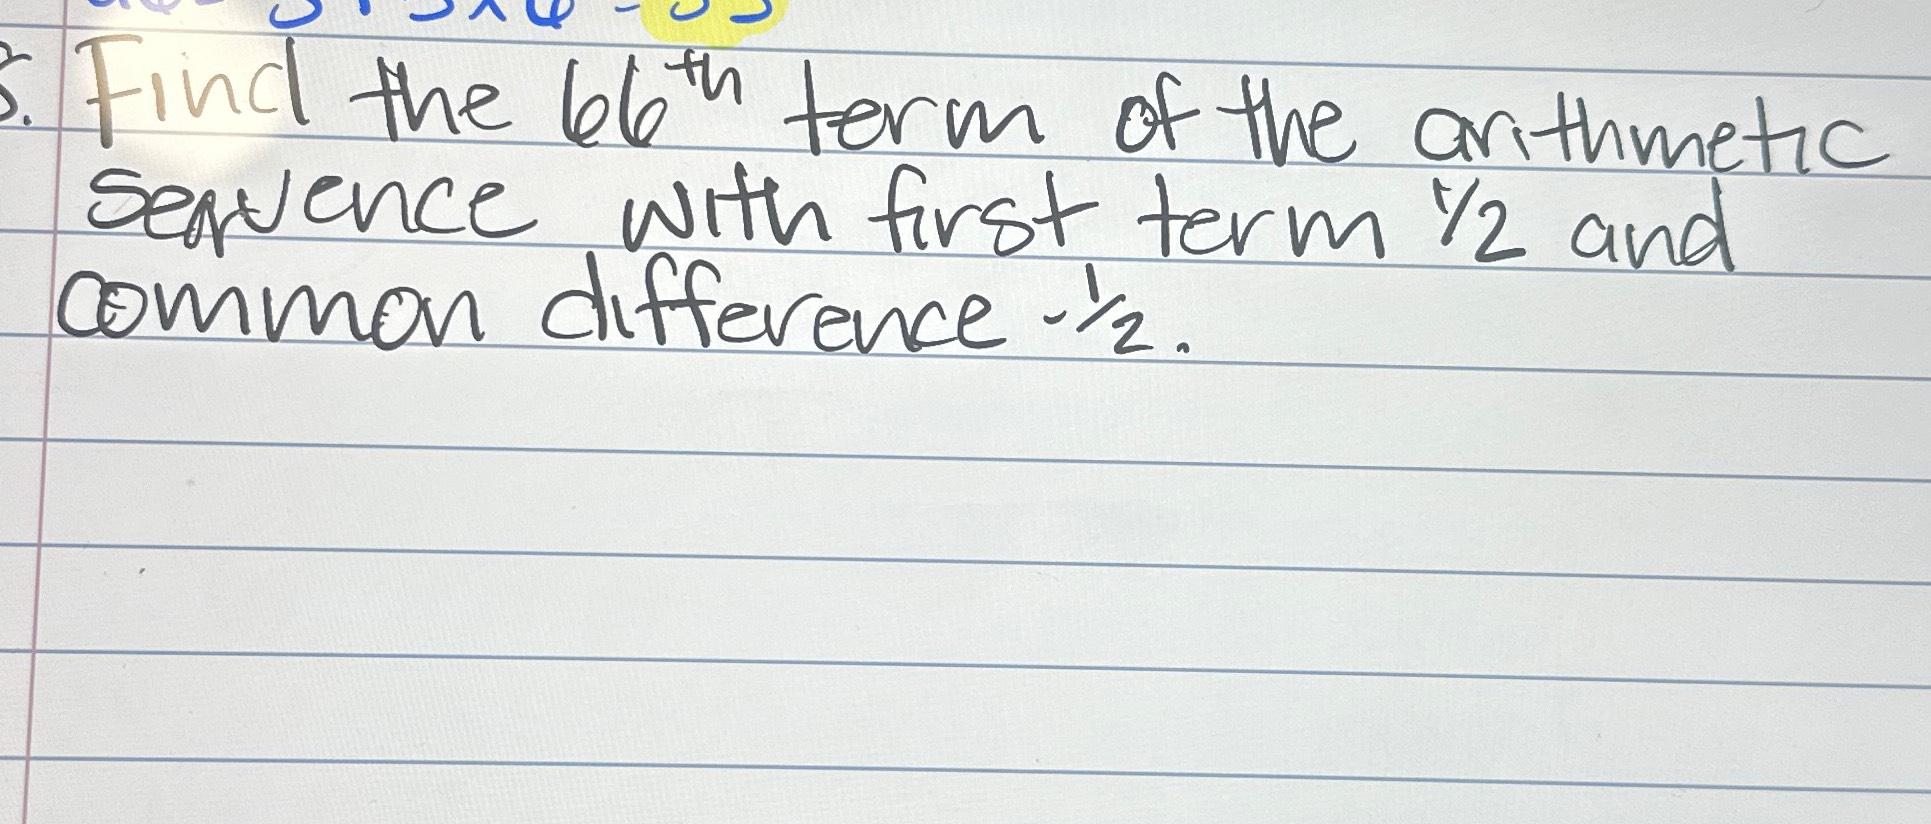 Find the 66th term of the arithmetic
sequence with first term 1/2 and
common difference -1/2.